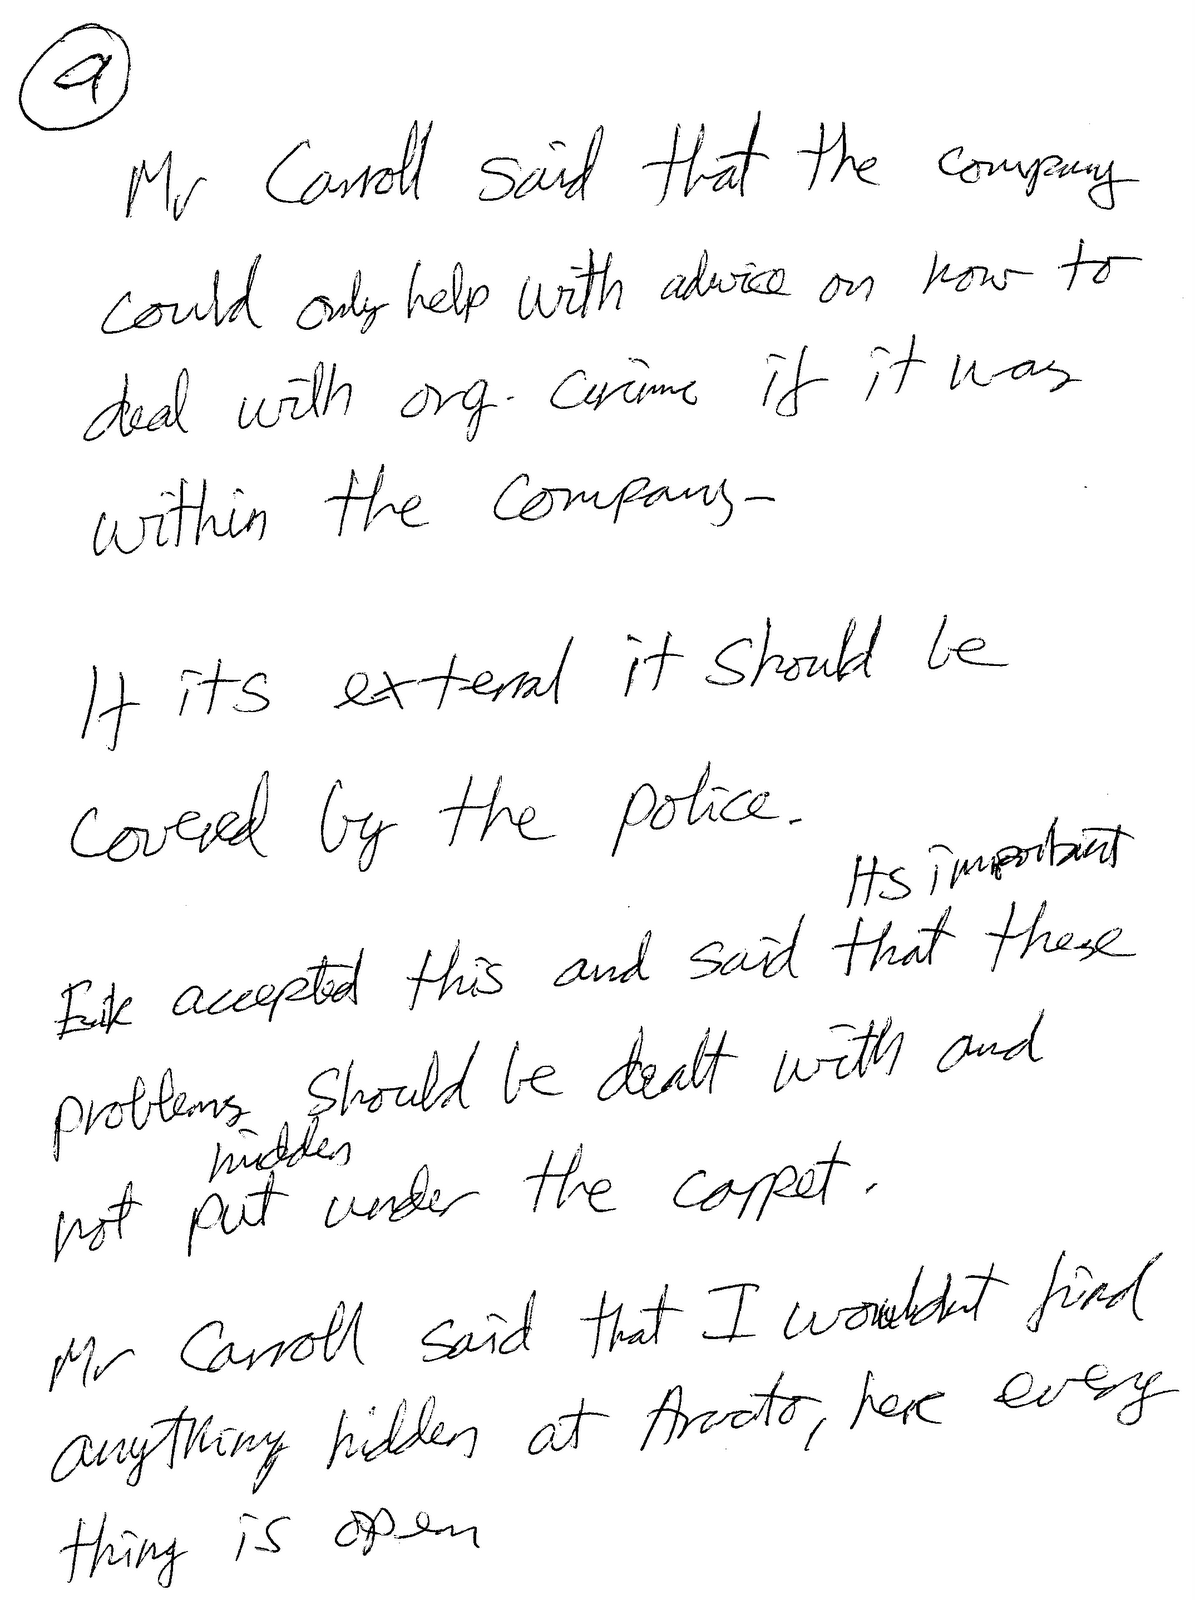 9
Mr Carroll said that the company
could only help with advice on how to
deal with org. crime if it was
within the company-
If its external it should be
covered by the police.
Its important
Erik accepted this and said that these
problems should be dealt with and
hidden
not put under the carpet.
Mr Carroll said that I wouldnt find
anything hidden at Arvato, here every
thing is open